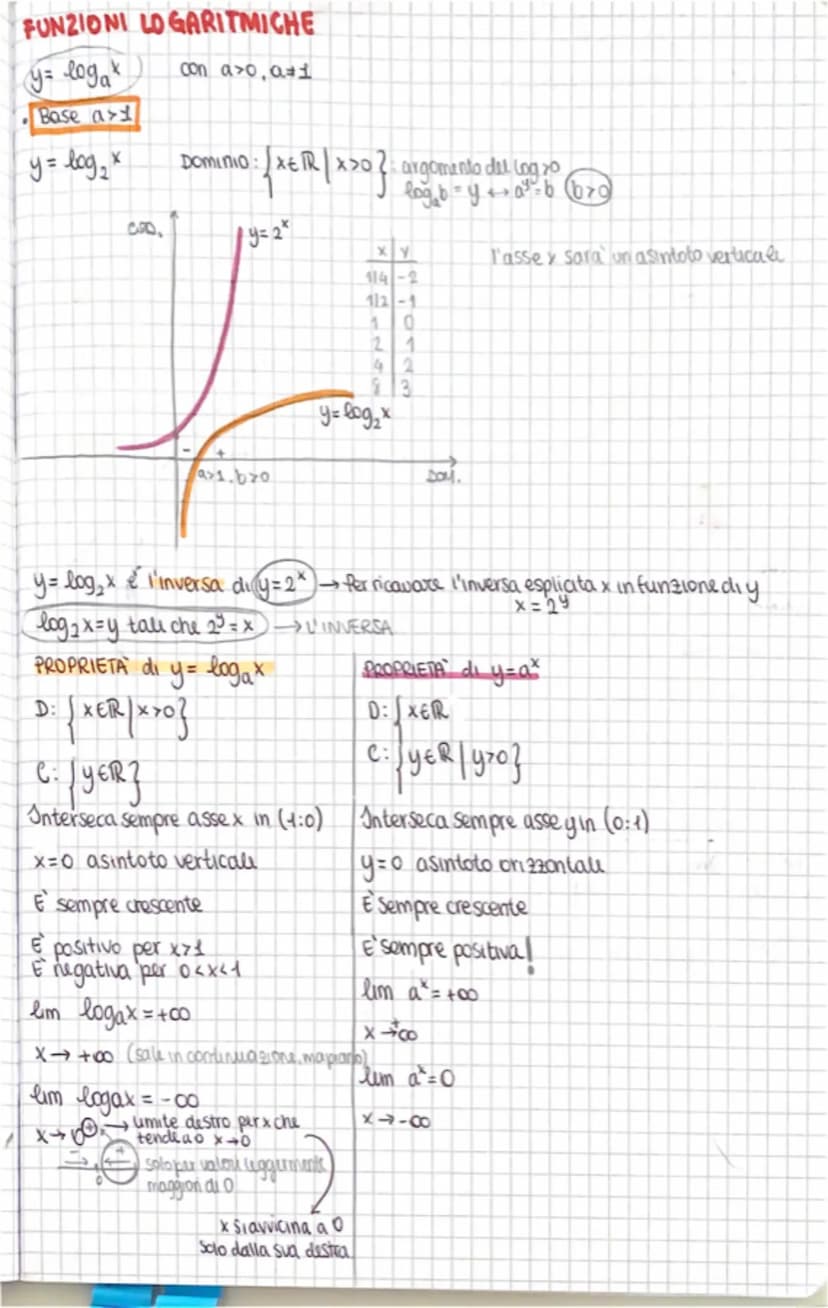 FUNZIONI LOGARITMICHE
y= logₐx con a>0, a≠1
• Base a>1
y= log₂x DOMINIO: {x∈ℝ | x>0}: argomento del log>0
logₐb = y ↔ aʸ=b (b>0)
COD. y=2ˣ
x y
1/4 -2
1/2 -1
1 0
2 1
4 2
8 3
l'asse y sara' un asintoto verticale
y=log₂x
- +
a>1, b>0 DOM.
y= log₂x è l'inversa di y=2ˣ → Per ricavare l'inversa esplicita x in funzione di y
x = 2ʸ
log₂x=y tali che 2ʸ=x → L'INVERSA
PROPRIETA' di y= logₐx
D: {x∈ℝ | x>0}
C: {y∈ℝ}
Interseca sempre asse x in (1:0)
x=0 asintoto verticale
E' sempre crescente
E' positivo per x>1
E' negativa per 0<x<1
lim logₐx = +∞
x→ +∞ (sale in continuazione, ma piano)
lim logax = -∞
x→0⁺ → limite destro per x che
tende a 0 x→0
- → 0 ← +
solo per valori leggermente
maggiori di 0
x si avvicina a 0
solo dalla sua destra
PROPRIETA' di y=aˣ
D: {x∈ℝ
C: {y∈ℝ | y>0}
Interseca sempre asse y in (0:1)
y=0 asintoto orizzontale
E' sempre crescente
E' sempre positiva!
lim aˣ = +∞
x→+∞
lim aˣ=0
x→-∞